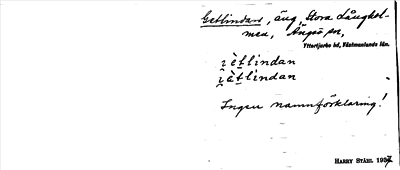 Getlindan, äng, Stora Långhol-
men, Ängsö sn,
Yttertjurbo hd, Västmanlands län.
i̯è̀tlindan
i̯è̀tlíndan
Ingen namnförklaring!
HARRY STÅHL 1934